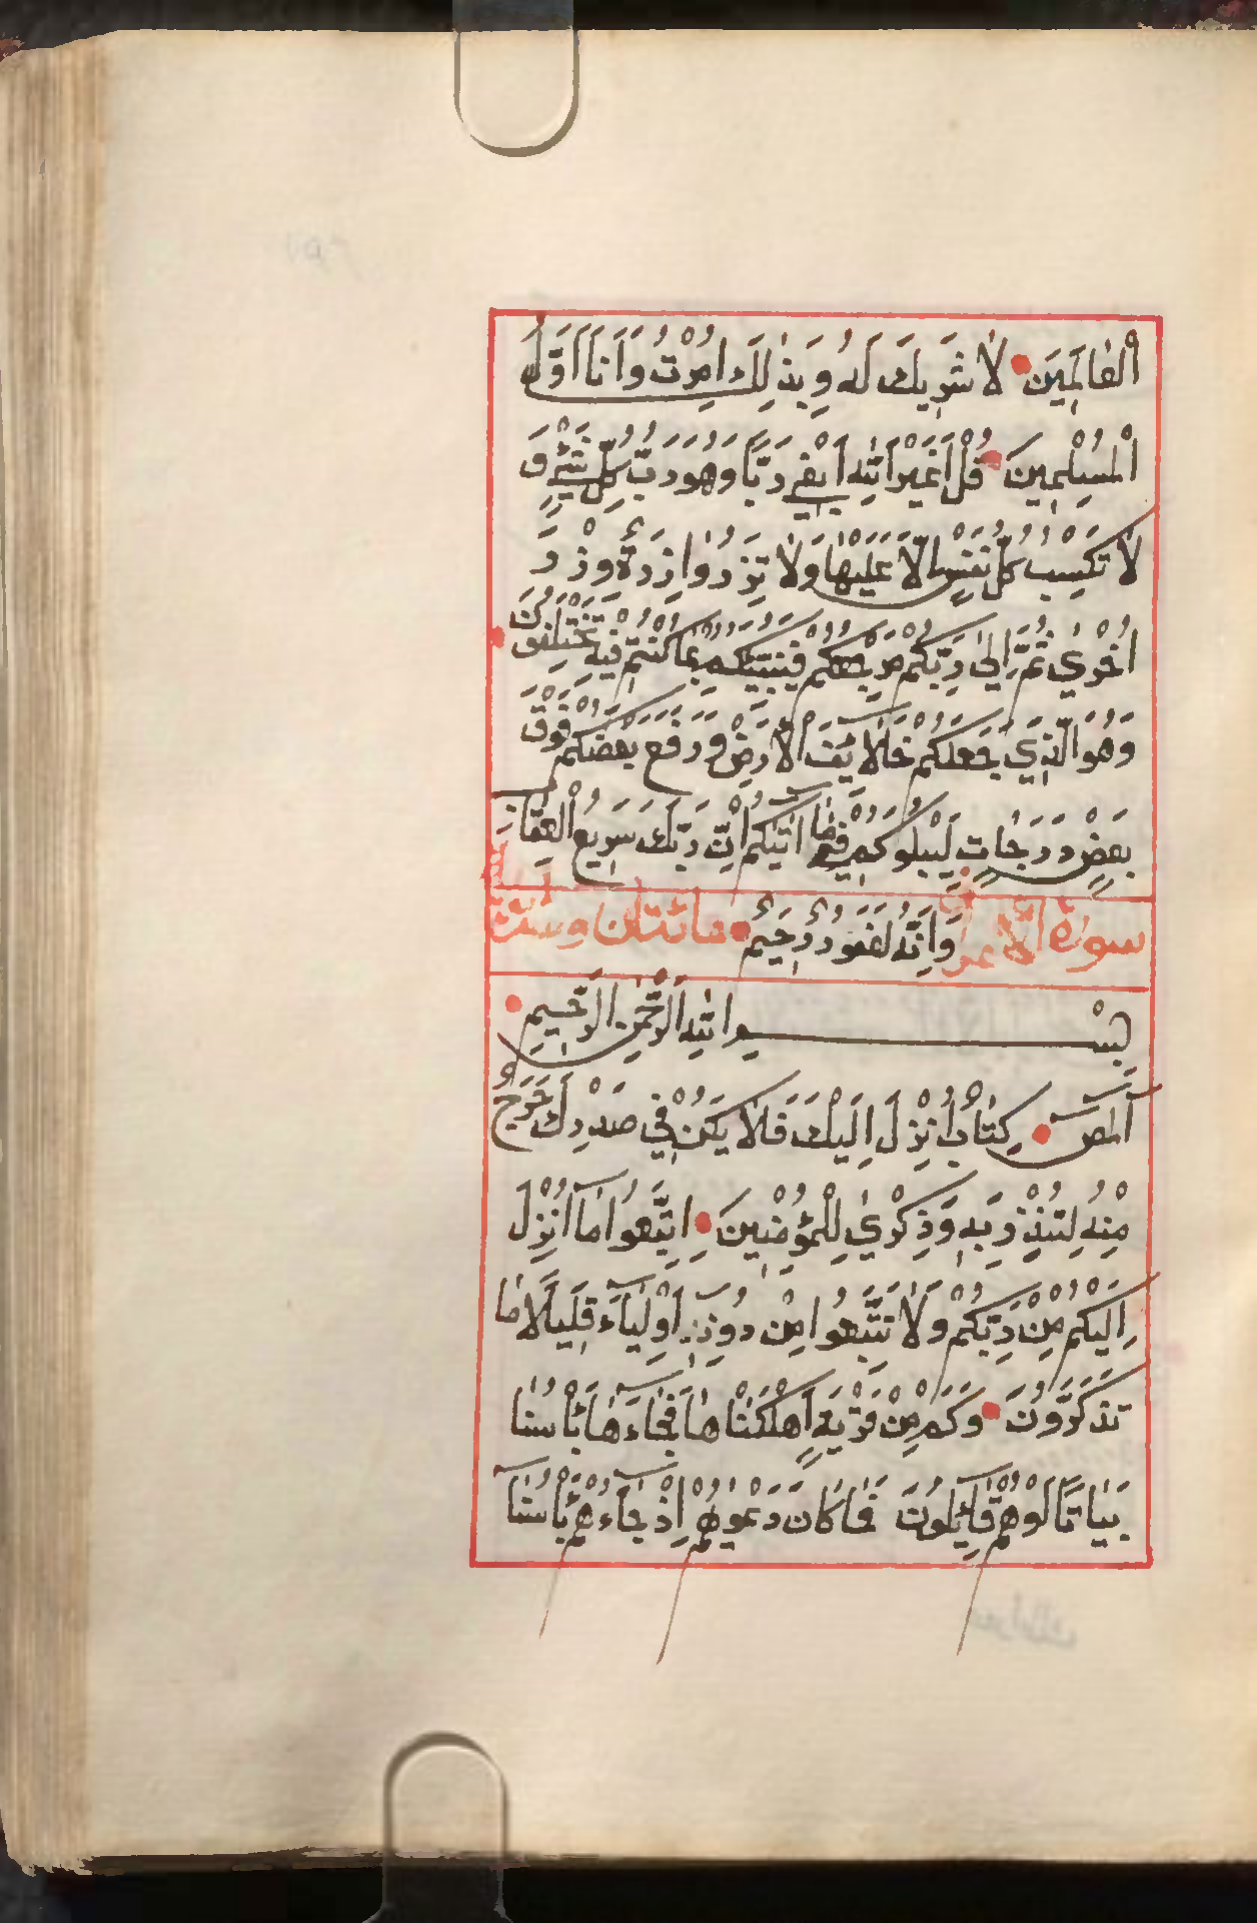 الْعَالَمِينَ لَا شَرِيكَ لَهُ وَبِذَٰلِكَ اُمِرْتُ وَاَنَا اَوَّلُ
الْمُسْلِمِينَ قُلْ اَغَيْرَ اللّٰهِ اَبْغِي رَبًّا وَهُوَ رَبُّ كُلِّ شَيْءٍ وَ
لَا تَكْسِبُ كُلُّ نَفْسٍ اِلَّا عَلَيْهَا وَلَا تَزِرُ وَازِرَةٌ وِزْرَ
اُخْرٰي ثُمَّ اِلٰي رَبِّكُمْ مَرْجِعُكُمْ فَيُنَبِّئُكُمْ بِمَا كُنْتُمْ فِيهِ تَخْتَلِفُونَ
وَهُوَ الَّذِي جَعَلَكُمْ خَلَائِفَ الْاَرْضِ وَرَفَعَ بَعْضَكُمْ فَوْقَ
بَعْضٍ دَرَجَاتٍ لِيَبْلُوَكُمْ فِي مَا اٰتٰيكُمْ اِنَّ رَبَّكَ سَرِيعُ الْعِقَابِ
سورة الاعراف وَاِنَّهُ لَغَفُورٌ رَحِيمٌ مائتان وست
بِسْمِ اللّٰهِ الرَّحْمٰنِ الرَّحِيمِ
الٓمٓصٓ كِتَابٌ اُنْزِلَ اِلَيْكَ فَلَا يَكُنْ فِي صَدْرِكَ حَرَجٌ
مِنْهُ لِتُنْذِرَ بِهِ وَذِكْرٰي لِلْمُؤْمِنِينَ اِتَّبِعُوا مَا اُنْزِلَ
اِلَيْكُمْ مِنْ رَبِّكُمْ وَلَا تَتَّبِعُوا مِنْ دُونِهِ اَوْلِيَاءَ قَلِيلًا مَا
تَذَكَّرُونَ وَكَمْ مِنْ قَرْيَةٍ اَهْلَكْنَاهَا فَجَاءَهَا بَأْسُنَا
بَيَاتًا اَوْ هُمْ قَائِلُونَ فَمَا كَانَ دَعْوٰيهُمْ اِذْ جَاءَهُمْ بَأْسُنَا